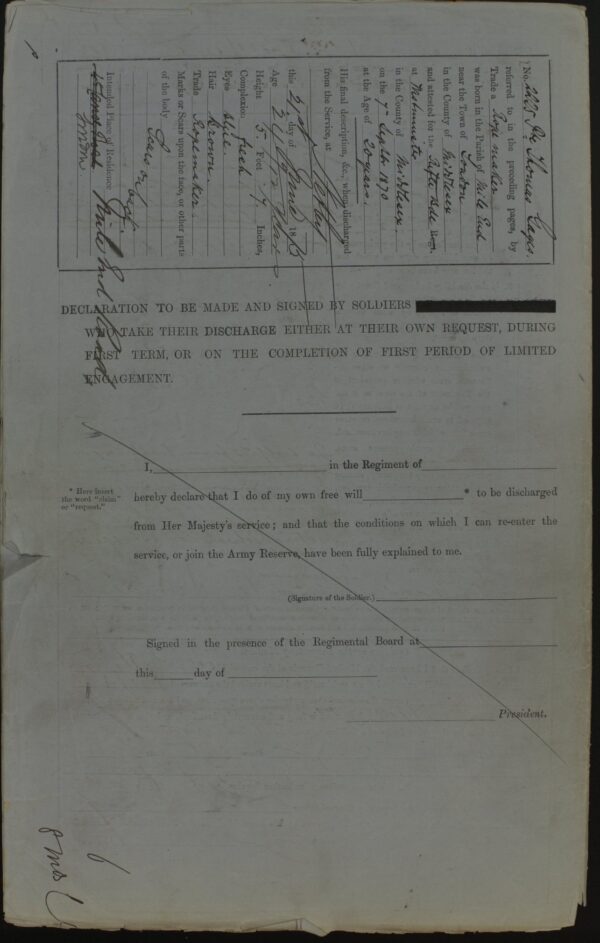 No. Pte Thomas
referred to in the preceding pages, by
Trade a Rope maker
was born in the Parish of Mile End
near the Town of London
in the County of Middlesex
and attested for the Rifle Bde Reg.
at Westminster
in the County of Middlesex.
on the 7th Septbr 1870
at the Age of 20 years.
His final description, &c., when discharged
from the Service, at
this 21st day of June 18
Age
Height 5 Feet 7 Inches,
Complexion fresh
Eyes blue.
Hair brown.
Trade Ropemaker
Marks or Scars upon the face, or other parts
of the body
Scars on
Intended Place of Residence
Mile End
London
DECLARATION TO BE MADE AND SIGNED BY SOLDIERS
WHO TAKE THEIR DISCHARGE EITHER AT THEIR OWN REQUEST, DURING
FIRST TERM, OR ON THE COMPLETION OF FIRST PERIOD OF LIMITED
ENGAGEMENT.
I, in the Regiment of
* Here insert
the word "claim"
or "request."
hereby declare that I do of my own free will * to be discharged
from Her Majesty's service; and that the conditions on which I can re-enter the
service, or join the Army Reserve, have been fully explained to me.
(Signature of the Soldier.)
Signed in the presence of the Regimental Board at
this day of
President.